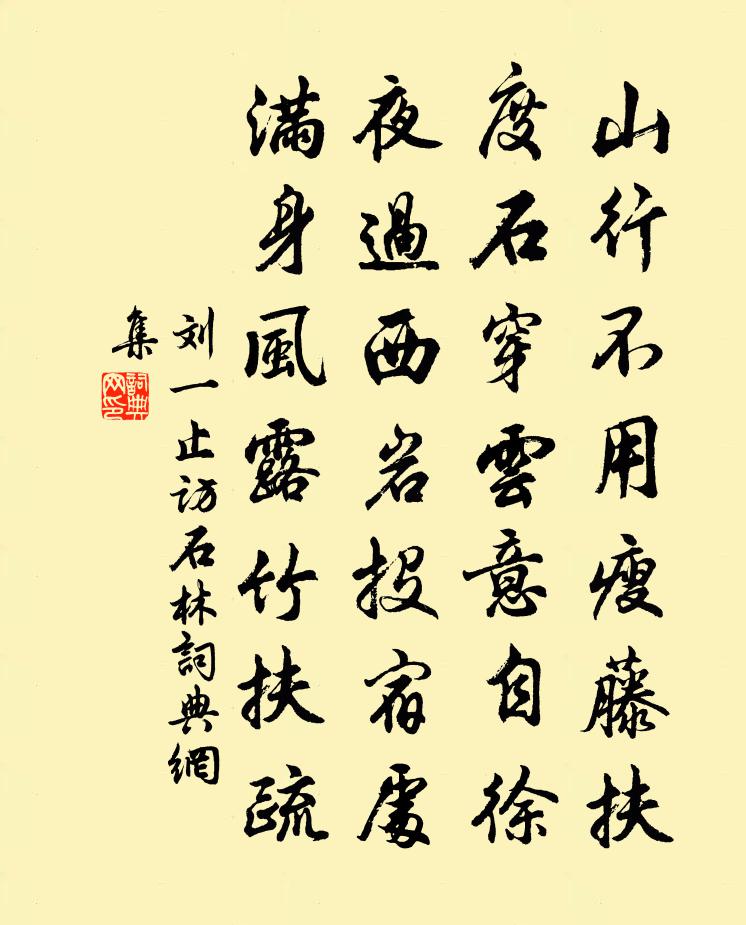 山行不用瘦藤扶
度石穿雲意自徐
夜過西岩投宿處
滿身風露竹扶疏
刘一止访石林詞典網
集
詞典
网印